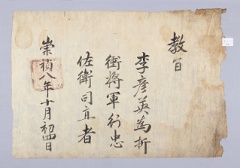 教旨
李彦英為折
衝將軍行忠
佐衛司直者
崇禎八年十月初日